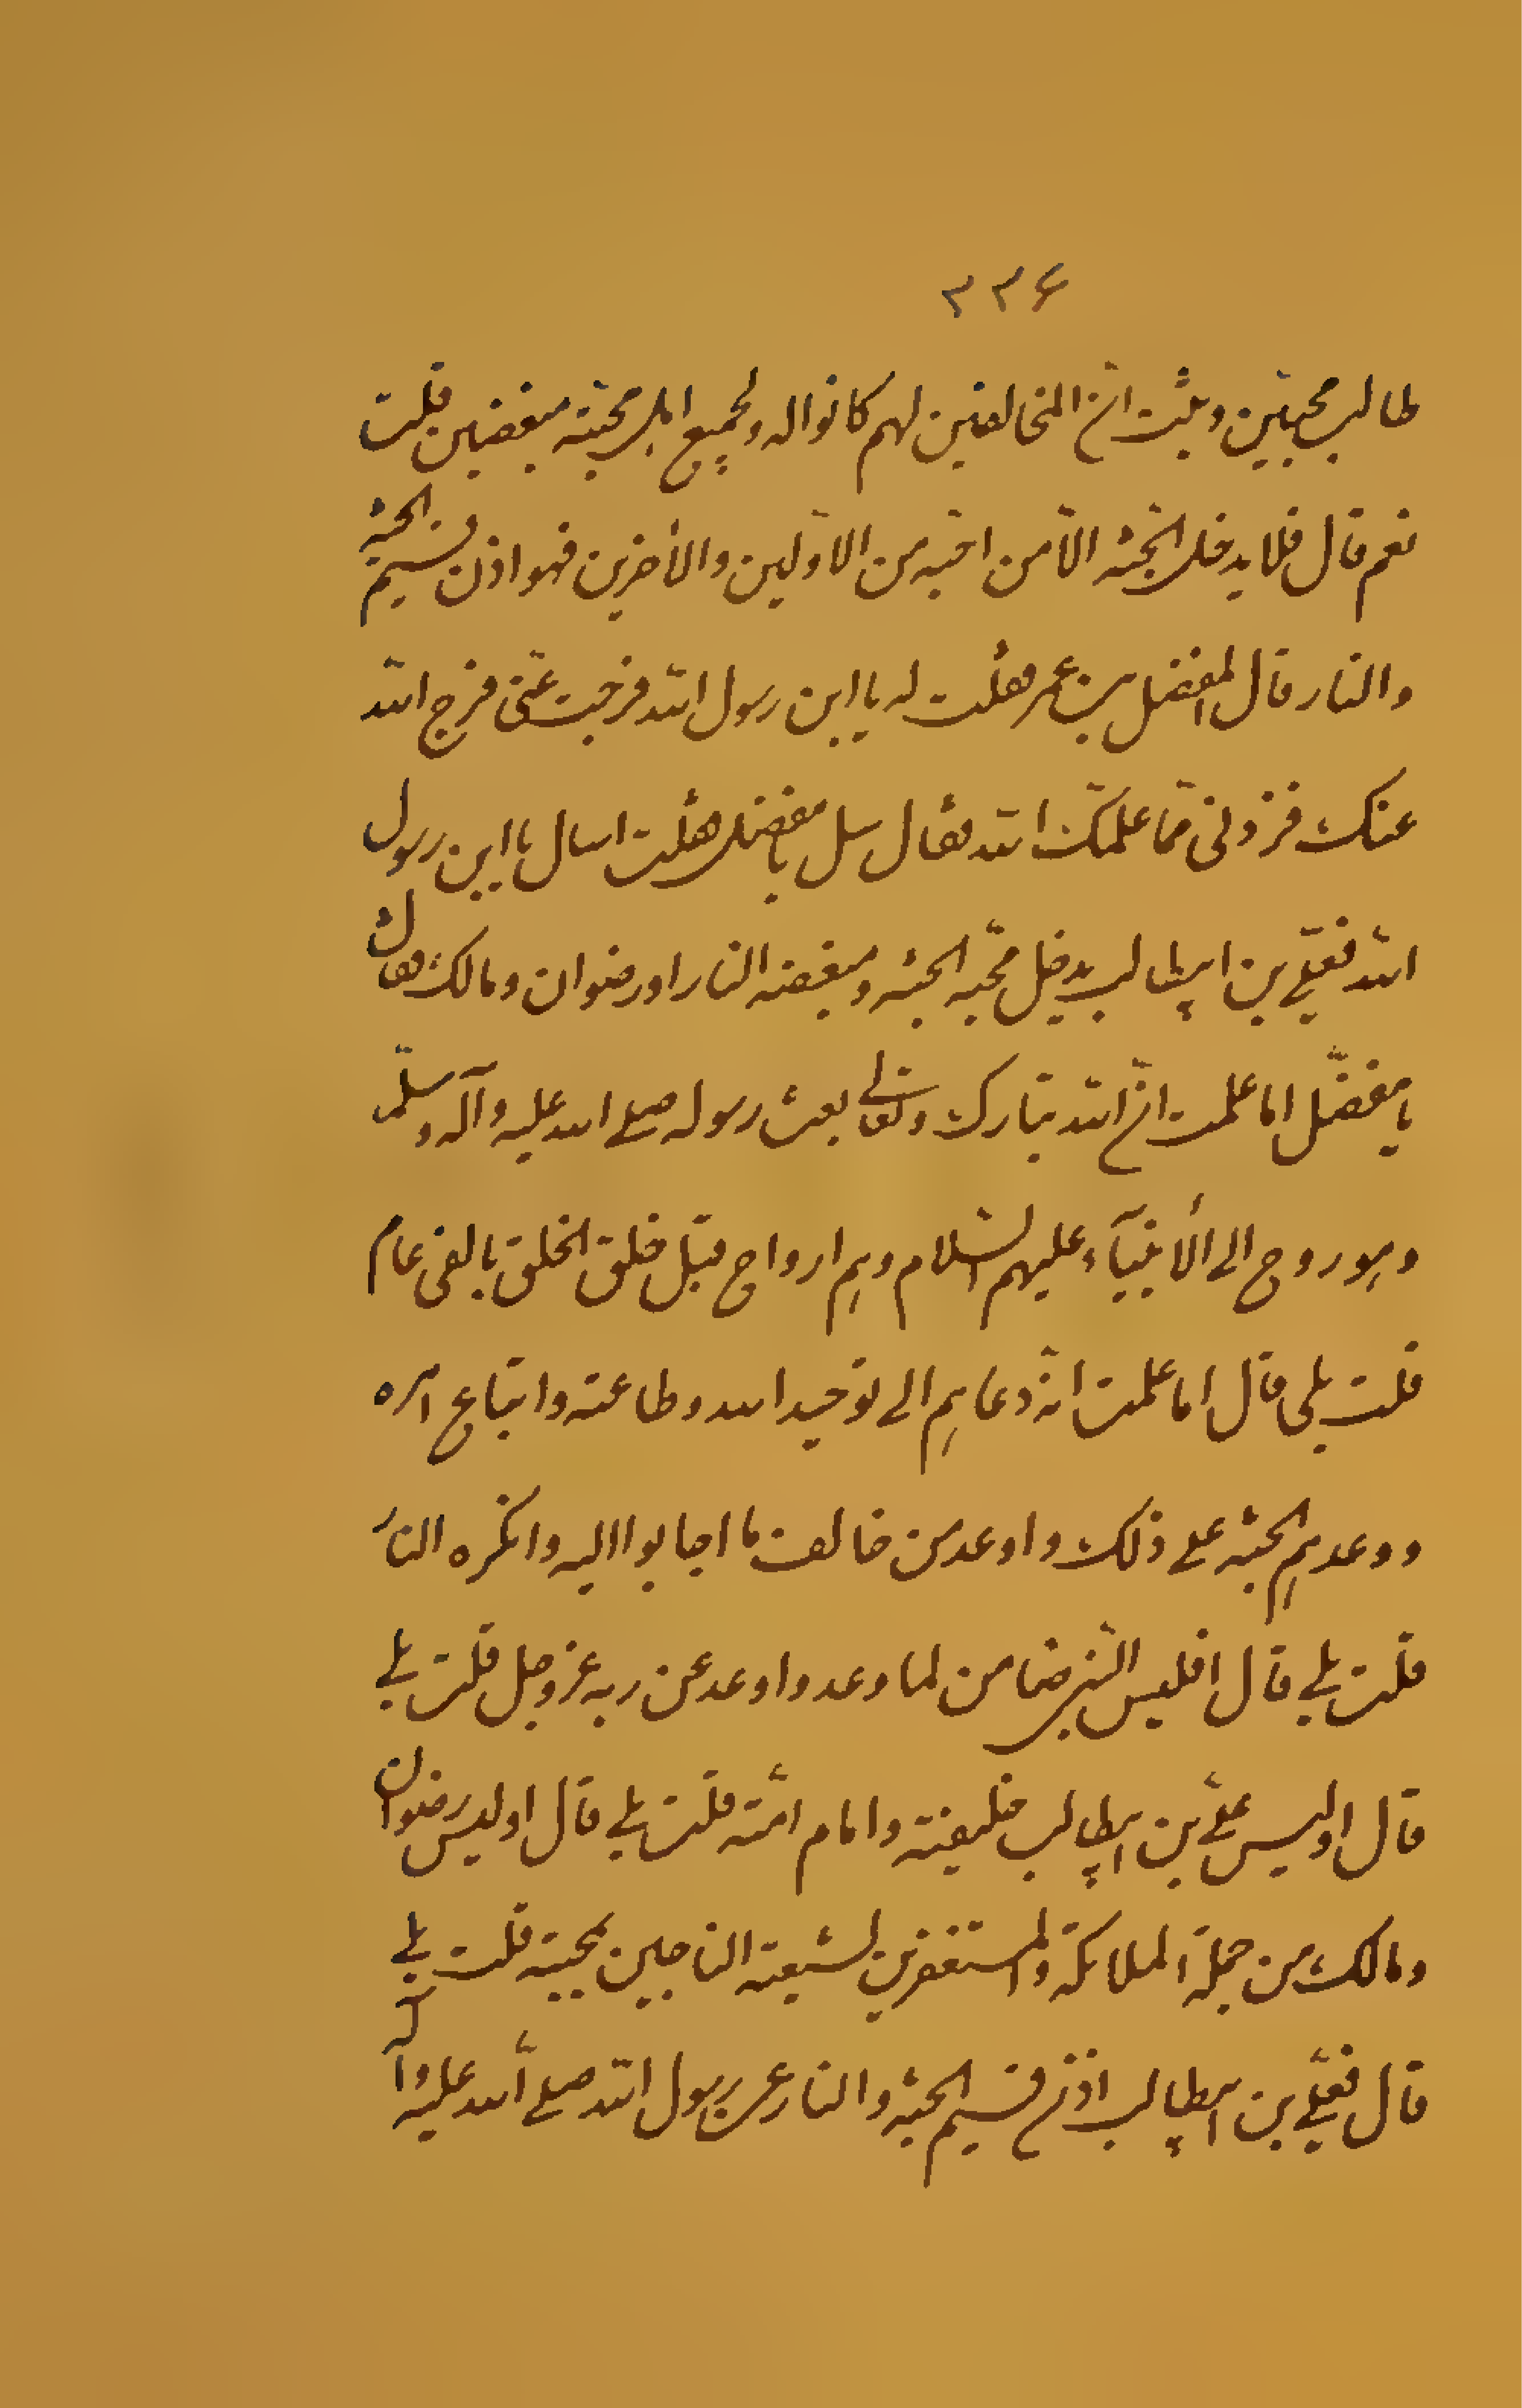 ۳۳۶
طالب محبین ویثبت انّ المخالفین لهم کانوا له ولجمیع اهل محبته مبغضین قلت
نعم قال فلا یدخل الجنّة الّا من احبّه من الاوّلین والآخرین فهو اذن قسیم الجنة
والنار قال المفضل بن عمر فقلت له یا ابن رسول الله فرجت عنّی فرج الله
عنک فزدنی ممّا علمک الله فقال سل یا مفضل فقلت اسال یا ابن رسول
الله فعلیّ بن ابیطالب یدخل محبّه الجنّة ومبغضه النار او رضوان ومالک فقال
یا مفضّل اما علمت انّ الله تبارک وتعالی بعث رسوله صلی الله علیه وآله وسلّم
وهو روح الی الأنبیآء علیهم السّلام وهم ارواح قبل خلق الخلق بالفی عام
قلت بلی قال اما علمت انّه دعاهم الی توحید الله وطاعته واتباع امره
ووعدهم الجنّة علی ذلک واوعد من خالف ما اجابوا الیه وانکره النار
قلت بلی قال افلیس النّبی ضامن لما وعد واوعد عن ربه عز وجل قلت بلی
قال اولیس علیّ بن ابیطالب خلیفته وامام امّته قلت بلی قال اولیس رضوان
ومالک من جملة الملائکة والمستغفرین لشیعته الناجین بمحبته قلت بلی
قال فعلیّ بن ابیطالب اذن قسیم الجنّة والنار عن رسول الله صلی الله علیه وآله